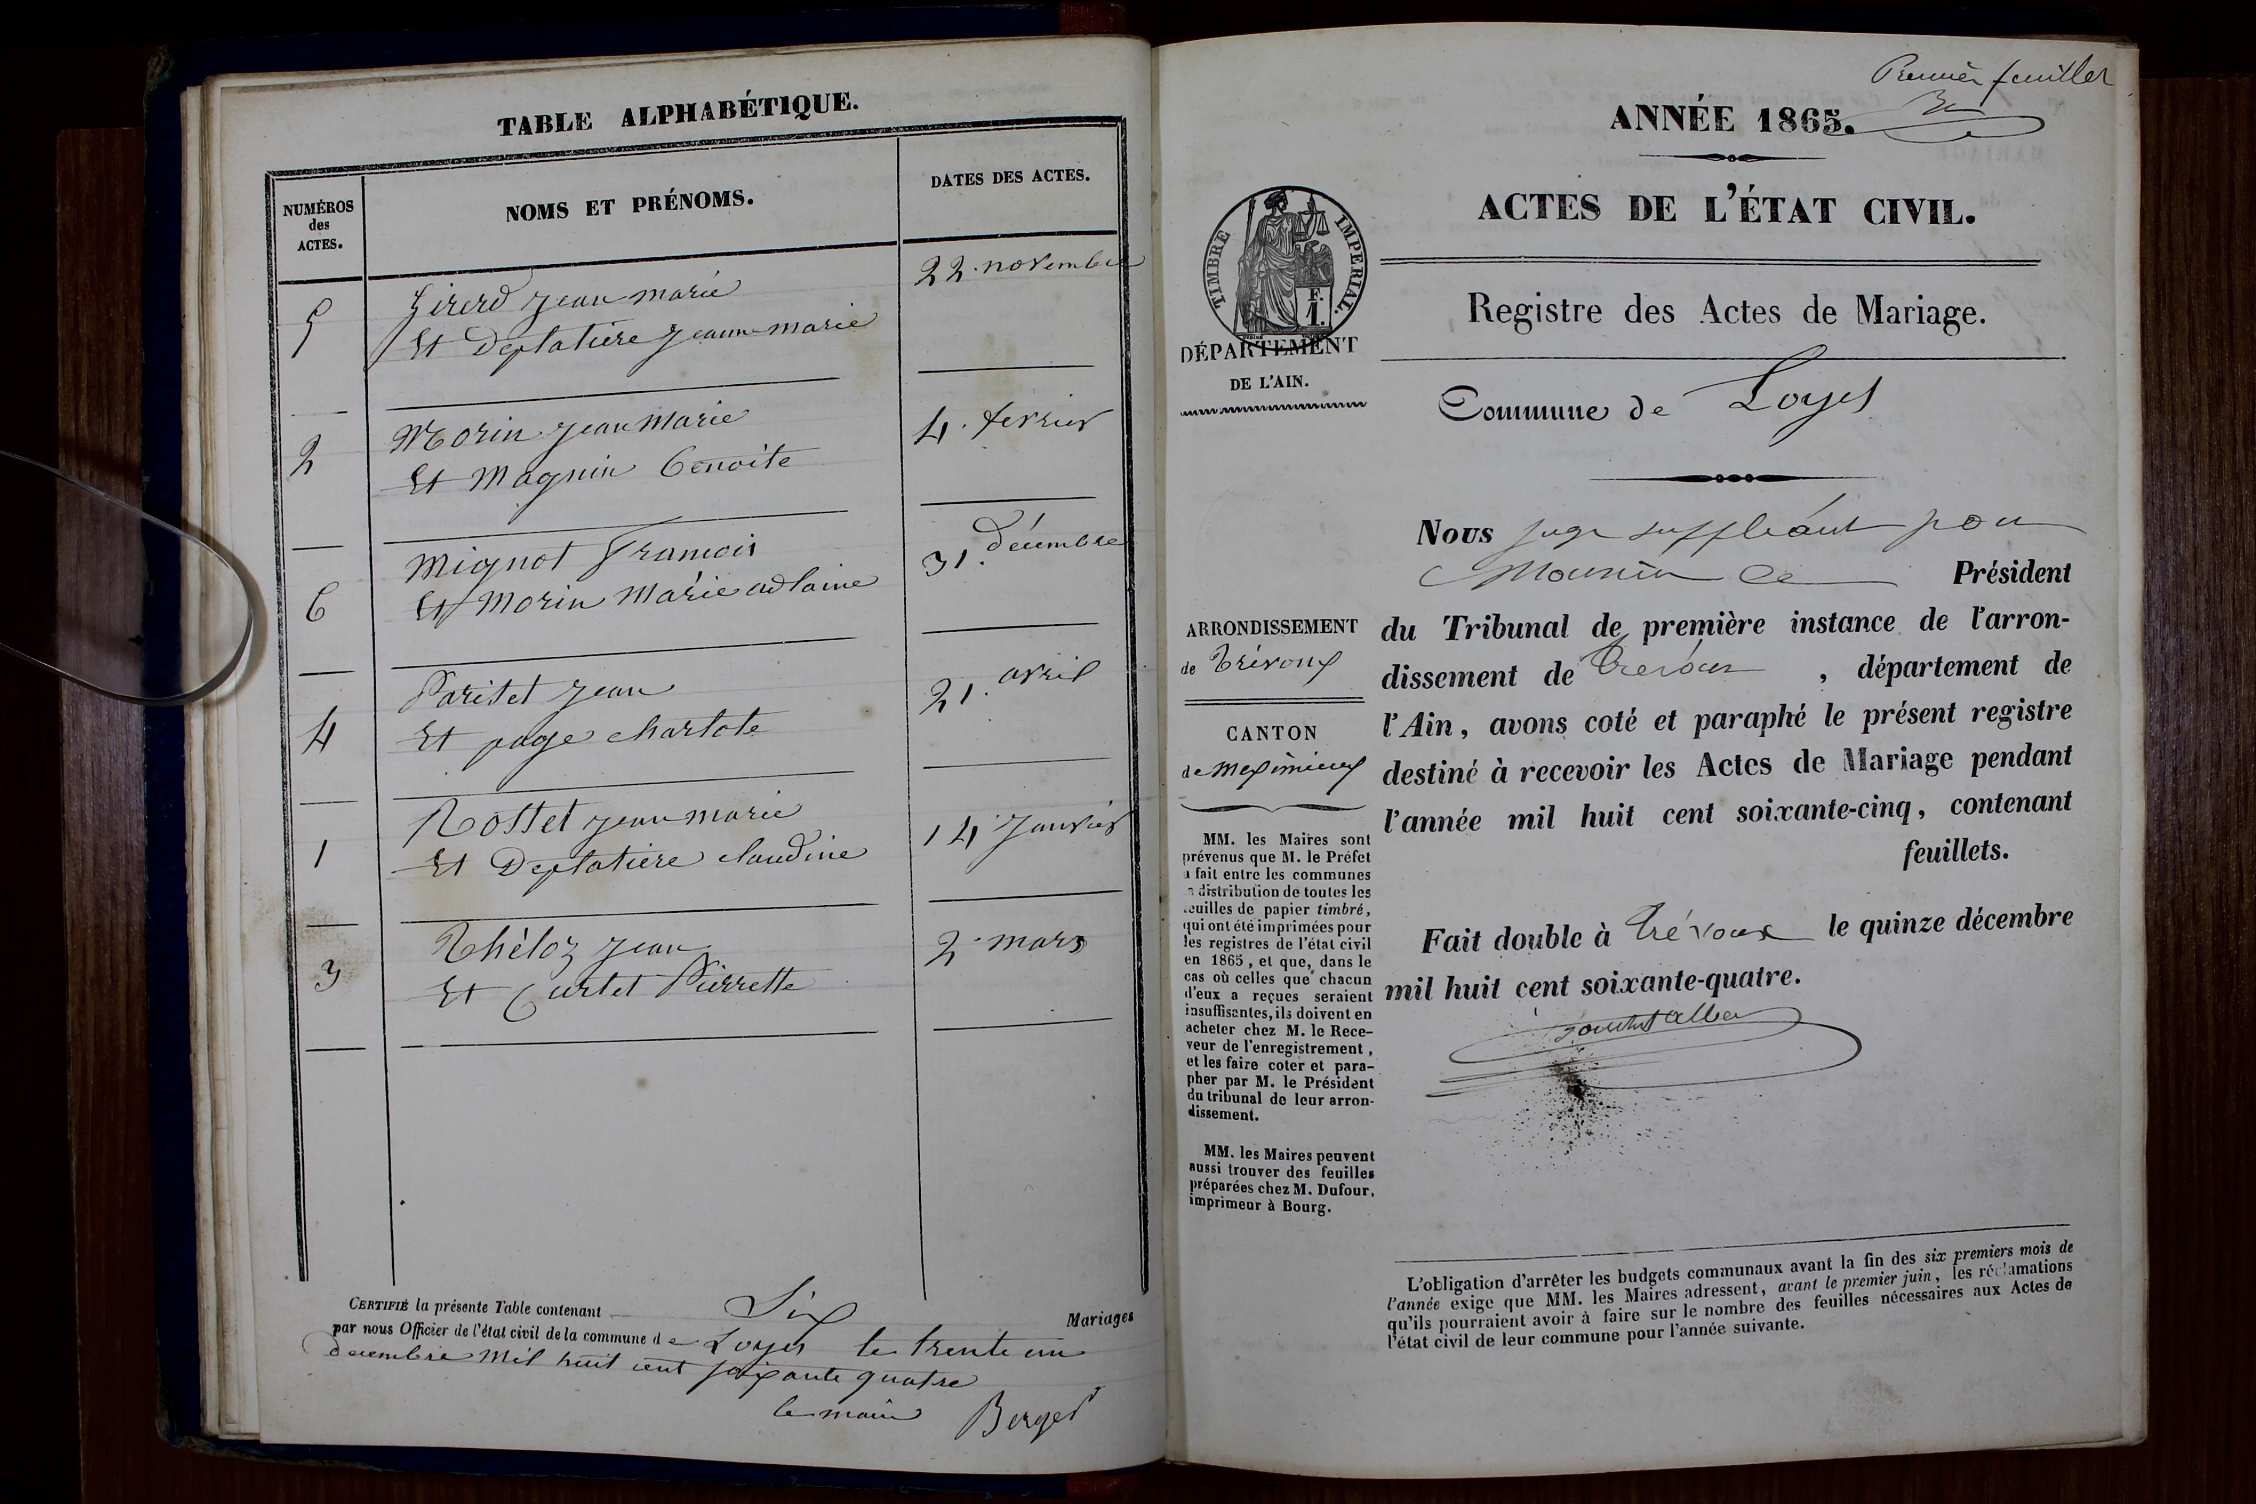 TABLE ALPHABÉTIQUE.
NUMÉROS
des
ACTES.
NOMS ET PRÉNOMS.
DATES DES ACTES.
5
Girerd Jean marie
22. novembre
Et Deplatière Jeanne marie
2
Morin Jean Marie
4. fevrier
Et Magnin Benoite
6
Mignot François
31. décembre
Et Morin Marie adlaine
4
Paritet Jean
21. avril
Et page charlote
1
Rostet Jean marie
14 Janvier
Et Deplatière claudine
3
Théloz Jean
2. mars
Et Curtet Pierrette
CERTIFIÉ la présente Table contenant Six Mariages
par nous Officier de l'état civil de la commune de Loyes le trente un
decembre mil huit cent soixante quatre
le maire Berger
Premier feuillet
ANNÉE 1865.
ACTES DE L'ÉTAT CIVIL.
TIMBRE IMPERIAL.
F.
1.
Registre des Actes de Mariage.
DÉPARTEMENT
DE L'AIN.
Commune de Loyes
Nous juge suppléant pour
Président
ARRONDISSEMENT
de Trévoux
CANTON
de Meximieux
du Tribunal de première instance de l'arron-
dissement de Trévoux, département de
l'Ain, avons coté et paraphé le présent registre
destiné à recevoir les Actes de Mariage pendant
l'année mil huit cent soixante-cinq, contenant
feuillets.
Fait double à Trévoux le quinze décembre
mil huit cent soixante-quatre.
MM. les Maires sont
prévenus que M. le Préfet
a fait entre les communes
la distribution de toutes les
feuilles de papier timbré,
qui ont été imprimées pour
les registres de l'état civil
en 1865, et que, dans le
cas où celles que chacun
d'eux a reçues seraient
insuffisantes, ils doivent en
acheter chez M. le Rece-
veur de l'enregistrement,
et les faire coter et para-
pher par M. le Président
du tribunal de leur arron-
dissement.
MM. les Maires peuvent
aussi trouver des feuilles
préparées chez M. Dufour,
imprimeur à Bourg.
L'obligation d'arrêter les budgets communaux avant la fin des six premiers mois de
l'année exige que MM. les Maires adressent, avant le premier juin, les réclamations
qu'ils pourraient avoir à faire sur le nombre des feuilles nécessaires aux Actes de
l'état civil de leur commune pour l'année suivante.